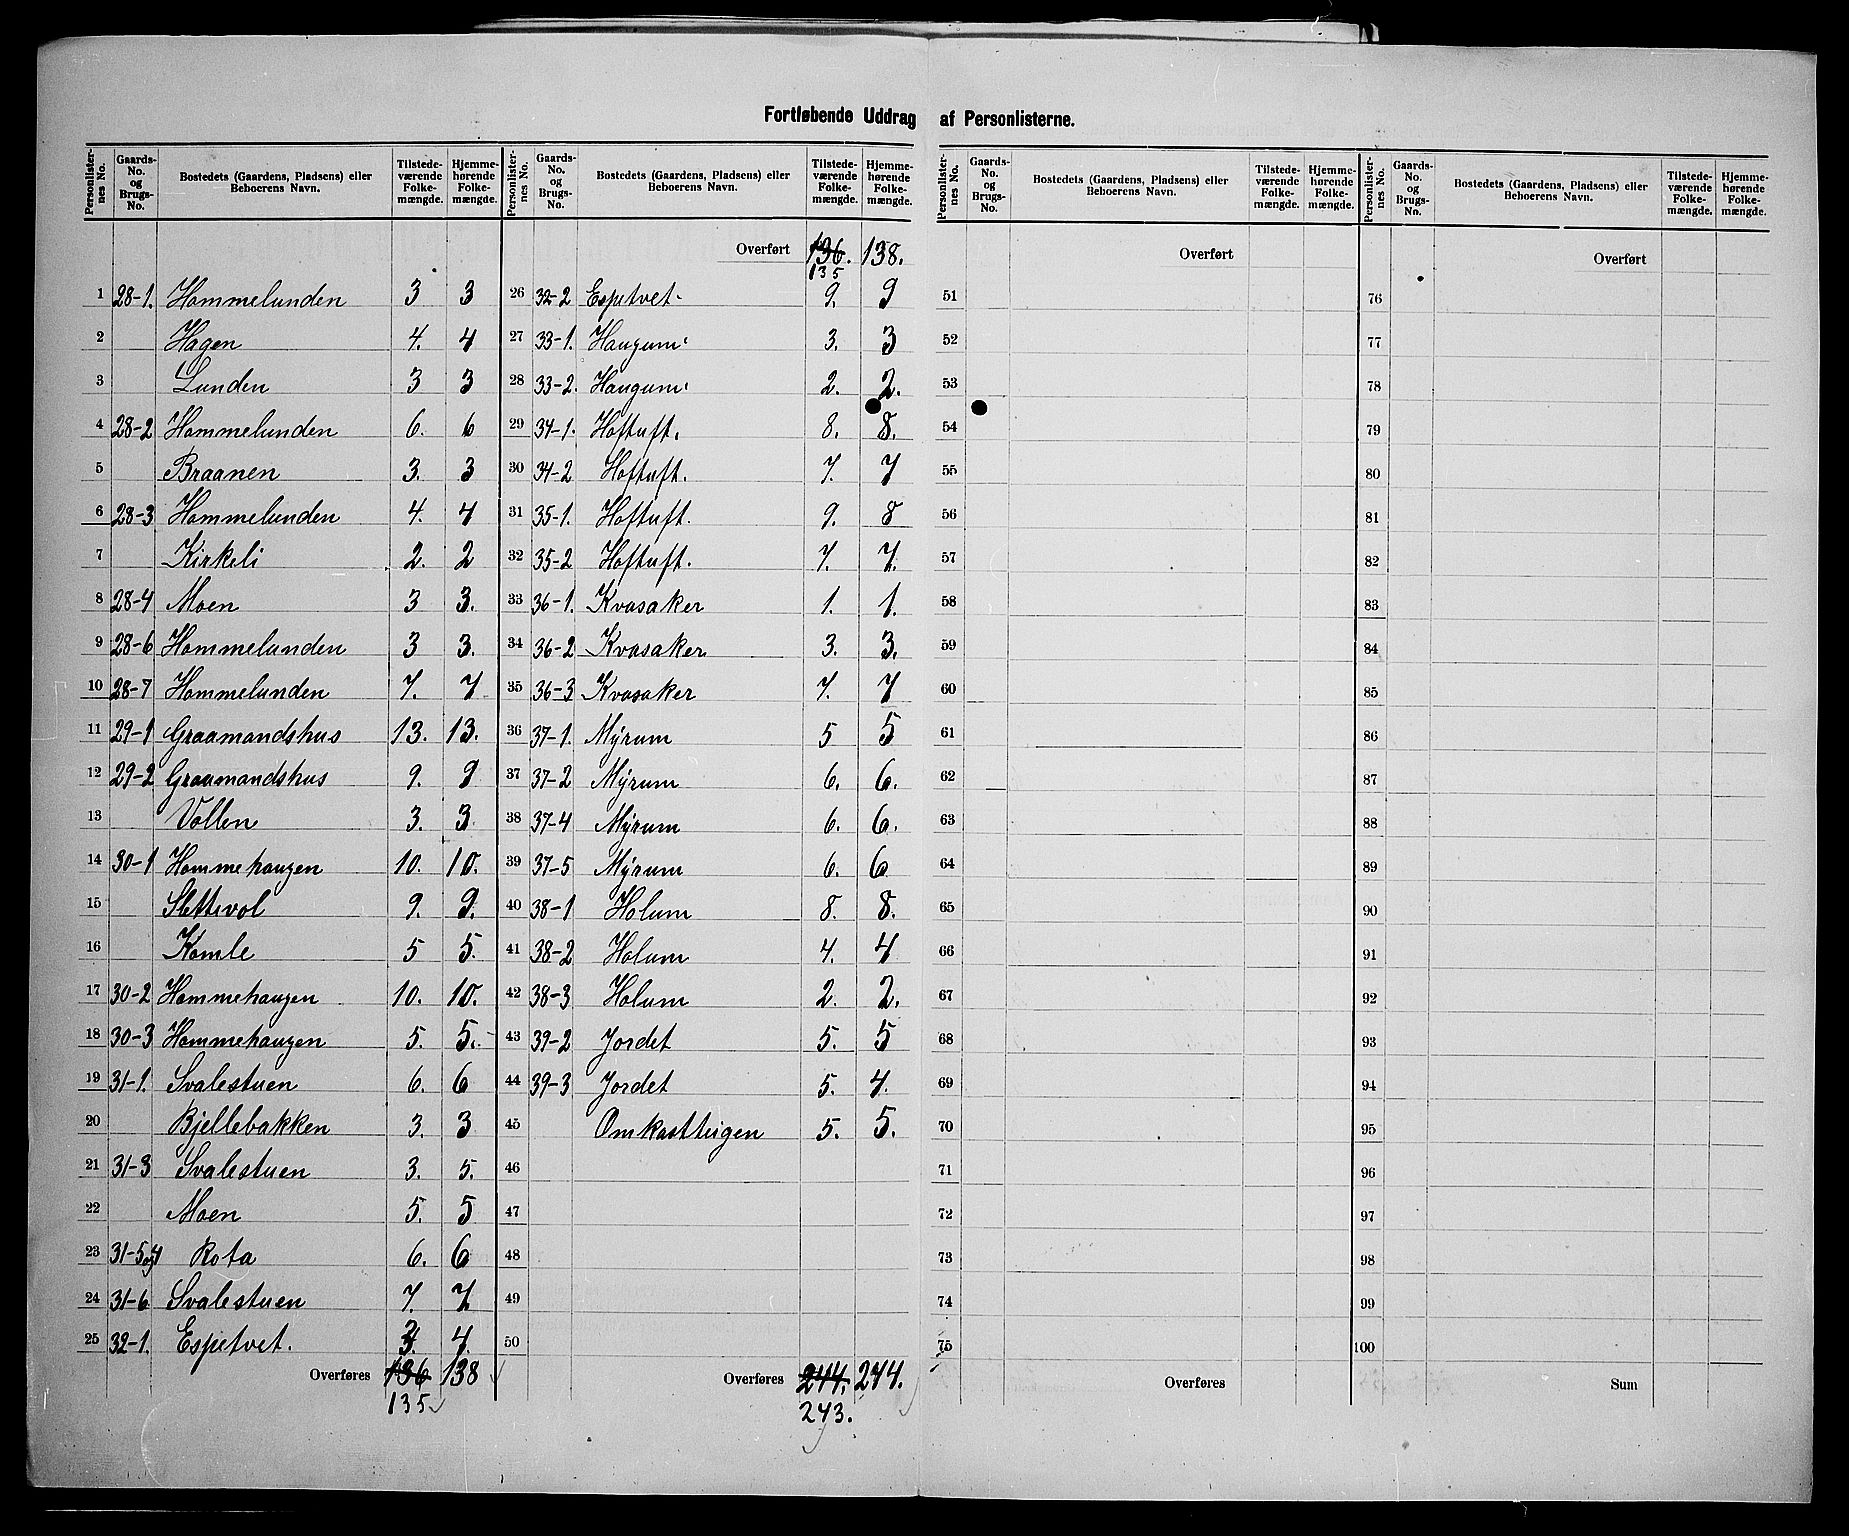 Fortløbende Uddrag af Personlisterne.
Personlister-nes No. Gaards-No. og Brugs-No. Bostedets (Gaardens, Pladsens) eller Beboerens Navn. Tilstede-værende Folke-mængde. Hjemme-hørende Folke-mængde.
1 28-1. Hommelunden 3 3
2 Hagen 4. 4
3 Lunden 3 3
4 28-2 Hommelunden 6. 6
5 Braanen 3. 3
6 28-3 Hommelunden 4. 4
7 Kirkeli 2. 2
8 28-4 Moen 3 3.
9 28-6 Hommelunden 3 3.
10 28-7 Hommelunden 7. 7
11 29-1 Graamandshus 13. 13.
12 29-2 Graamandshus 9. 9
13 Vollen 3. 3
14 30-1 Hommehaugen 10. 10.
15 Slettevol 9. 9.
16 Komle 5 5.
17 30-2 Hommehaugen 10. 10.
18 30-3 Hommehaugen 5. 5.
19 31-1. Svalestuen 6. 6
20 Bjellebakken 3. 3
21 31-3 Svalestuen 3. 5.
22 Moen 5. 5
23 31-5 og 4 Rota 6. 6
24 31-6 Svalestuen 7. 7
25 32-1. Espetvet. 3. 4.
Overføres 136 138
135
Personlister-nes No. Gaards-No. og Brugs-No. Bostedets (Gaardens, Pladsens) eller Beboerens Navn. Tilstede-værende Folke-mængde. Hjemme-hørende Folke-mængde.
Overført 136. 138.
135
26 32-2 Espetvet. 9. 9
27 33-1. Haugum 3. 3
28 33-2. Haugum 2. 2.
29 34-1. Hoftuft. 8. 8.
30 34-2 Hoftuft. 7. 7
31 35-1. Hoftuft. 9. 8
32 35-2 Hoftuft. 7. 7.
33 36-1. Kvasaker 1. 1.
34 36-2 Kvasaker 3. 3.
35 36-3 Kvasaker 7. 7
36 37-1. Myrum 5 5
37 37-2 Myrum 6. 6.
38 37-4 Myrum 6. 6.
39 37-5 Myrum 6. 6
40 38-1 Holum 8. 8.
41 38-2 Holum 4. 4
42 38-3 Holum 2. 2.
43 39-2 Jordet 5. 5
44 39-3 Jordet 5. 4.
45 Omkastteigen 5. 5.
46
47
48
49
50
Overføres 244. 244.
243.
Personlister-nes No. Gaards-No. og Brugs-No. Bostedets (Gaardens, Pladsens) eller Beboerens Navn. Tilstede-værende Folke-mængde. Hjemme-hørende Folke-mængde.
Overført
51
52
53
54
55
56
57
58
59
60
61
62
63
64
65
66
67
68
69
70
71
72
73
74
75
Overføres
Personlister-nes No. Gaardens, No. og Brugs-No. Bostedets (Gaardens, Pladsens) eller Beboerens Navn. Tilstede-værende Folke-mængde. Hjemme-hørende Folke-mængde.
Overført
76
77
78
79
80
81
82
83
84
85
86
87
88
89
90
91
92
93
94
95
96
97
98
99
100
Sum